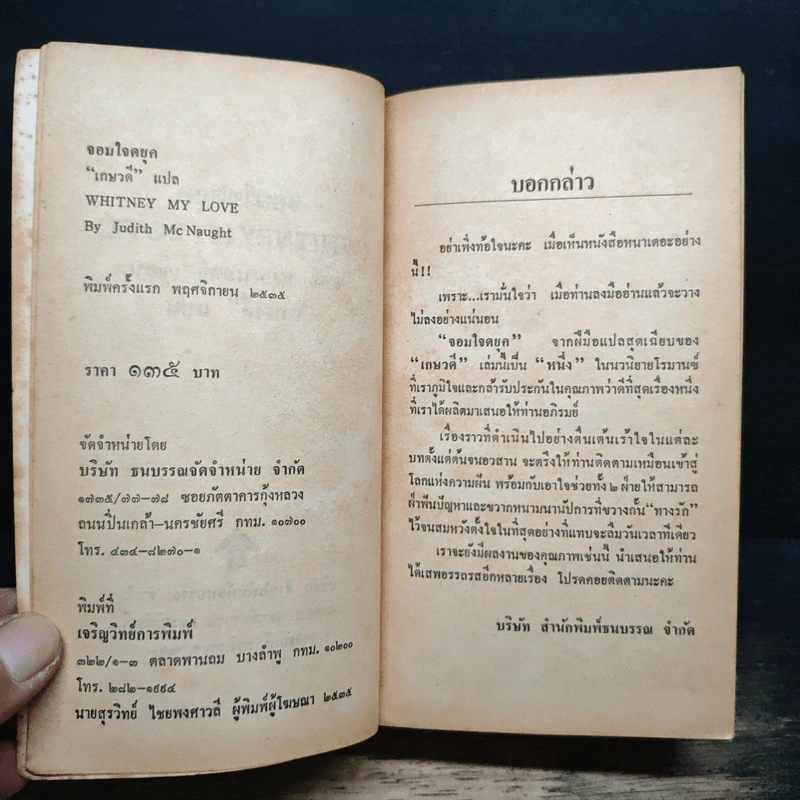 จอมใจดยุค
"เกษวดี" แปล
WHITNEY MY LOVE
By Judith Mc Naught
พิมพ์ครั้งแรก พฤศจิกายน ๒๕๓๕
ราคา ๑๓๕ บาท
จัดจำหน่ายโดย
บริษัท ธนบรรณจัดจำหน่าย จำกัด
๑๗๓๕/๗๗-๗๘ ซอยภัตตาคารกุ้งหลวง
ถนนปิ่นเกล้า-นครชัยศรี กทม. ๑๐๗๐๐
โทร. ๔๓๔-๘๒๗๐-๑
พิมพ์ที่
เจริญวิทย์การพิมพ์
๓๒๒/๑-๓ ตลาดพานถม บางลำพู กทม. ๑๐๒๐๐
โทร. ๒๘๒-๑๙๙๔
นายสุรวิทย์ ไชยพงศาวลี ผู้พิมพ์ผู้โฆษณา ๒๕๓๕
บอกกล่าว
อย่าเพิ่งท้อใจนะคะ เมื่อเห็นหนังสือหนาเตอะอย่าง
นี้!!
เพราะ...เรามั่นใจว่า เมื่อท่านลงมืออ่านแล้วจะวาง
ไม่ลงอย่างแน่นอน
"จอมใจดยุค" จากฝีมือแปลสุดเฉียบของ
"เกษวดี" เล่มนี้เป็น "หนึ่ง" ในนวนิยายโรมานซ์
ที่เราภูมิใจและกล้ารับประกันในคุณภาพว่าดีที่สุดเรื่องหนึ่ง
ที่เราได้ผลิตมาเสนอให้ท่านอภิรมย์
เรื่องราวที่ดำเนินไปอย่างตื่นเต้นเร้าใจในแต่ละ
บทตั้งแต่ต้นจนอวสาน จะตรึงให้ท่านติดตามเหมือนเข้าสู่
โลกแห่งความฝัน พร้อมกับเอาใจช่วยทั้ง ๒ ฝ่ายให้สามารถ
ฝ่าฟันปัญหาและขวากหนามนานัปการที่ขวางกั้น "ทางรัก"
ไว้จนสมหวังดั่งใจในที่สุดอย่างที่แทบจะลืมวันเวลาทีเดียว
เราจะยังมีผลงานของคุณภาพเช่นนี้ นำเสนอให้ท่าน
ได้เสพอรรถรสอีกหลายเรื่อง โปรดคอยติดตามนะคะ
บริษัท สำนักพิมพ์ธนบรรณ จำกัด